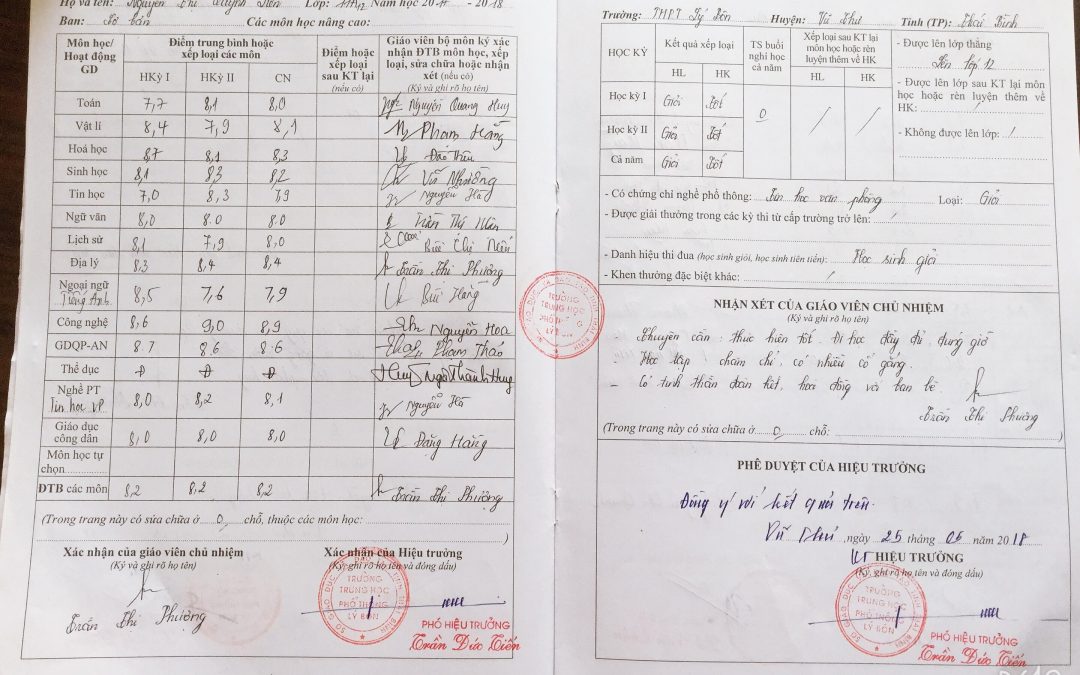 Họ và tên: Nguyễn Thị Quỳnh Lớp: 11A12 Năm học 2017 - 2018
Ban: Cơ bản Các môn học nâng cao:
Môn học/ Hoạt động GD
Điểm trung bình hoặc xếp loại các môn
HKỳ I HKỳ II CN
Điểm hoặc xếp loại sau KT lại (nếu có)
Giáo viên bộ môn ký xác nhận ĐTB môn học, xếp loại, sửa chữa hoặc nhận xét (nếu có)
(Ký và ghi rõ họ tên)
Toán 7,7 8,1 8,0 Nguyễn Quang Huy
Vật lí 8,4 7,9 8,1 Phạm Hằng
Hoá học 8,7 8,1 8,3
Sinh học 8,1 8,3 8,2 Vũ
Tin học 7,0 8,3 7,9 Nguyễn Hà
Ngữ văn 8,0 8.0 8.0 Trần Thị
Lịch sử 8,1 7,9 8,0 Bùi
Địa lý 8,3 8,4 8,4 Trần Thị Phượng
Ngoại ngữ Tiếng Anh 8,5 7,6 7,9 Bùi Hằng
Công nghệ 8,6 9,0 8,9 Nguyễn Hoa
GDQP-AN 8.7 8.6 8.6 Phạm Thảo
Thể dục Đ Đ Đ Ngô Thành Huy
Nghề PT Tin học VP 8,0 8,2 8,1 Nguyễn Hà
Giáo dục công dân 8,0 8,0 8,0 Đặng Hằng
Môn học tự chọn
ĐTB các môn 8,2 8,2 8,2 Trần Thị Phượng
(Trong trang này có sửa chữa ở 0 chỗ, thuộc các môn học: )
Xác nhận của giáo viên chủ nhiệm
(Ký và ghi rõ họ tên)
Trần Thị Phượng
Xác nhận của Hiệu trưởng
(Ký, ghi rõ họ tên và đóng dấu)
SỞ GIÁO DỤC VÀ ĐÀO TẠO TỈNH THÁI BÌNH
TRƯỜNG
TRUNG HỌC
PHỔ THÔNG
LÝ BÔN
PHÓ HIỆU TRƯỞNG
Trần Đức Tiến
Trường: THPT Lý Bôn Huyện: Vũ Thư Tỉnh (TP): Thái Bình
HỌC KỲ
Kết quả xếp loại
HL HK
TS buổi nghỉ học cả năm
Xếp loại sau KT lại môn học hoặc rèn luyện thêm về HK
HL HK
Học kỳ I Giỏi Tốt 0 / /
Học kỳ II Giỏi Tốt
Cả năm Giỏi Tốt
- Được lên lớp thẳng
Lên lớp 12
- Được lên lớp sau KT lại môn học hoặc rèn luyện thêm về HK: /
- Không được lên lớp: /
- Có chứng chỉ nghề phổ thông: Tin học văn phòng Loại: Giỏi
- Được giải thưởng trong các kỳ thi từ cấp trường trở lên: /
- Danh hiệu thi đua (học sinh giỏi, học sinh tiên tiến): Học sinh giỏi
- Khen thưởng đặc biệt khác: /
NHẬN XÉT CỦA GIÁO VIÊN CHỦ NHIỆM
(Ký và ghi rõ họ tên)
- Chuyên cần: thực hiện tốt. Đi học đầy đủ, đúng giờ
- Học tập chăm chỉ, có nhiều cố gắng.
- Có tinh thần đoàn kết, hòa đồng với bạn bè.
Trần Thị Phượng
(Trong trang này có sửa chữa ở 0 chỗ: )
PHÊ DUYỆT CỦA HIỆU TRƯỞNG
Đồng ý với kết quả trên.
Vũ Thư, ngày 25 tháng 05 năm 2018
KT HIỆU TRƯỞNG
(Ký, ghi rõ họ tên và đóng dấu)
SỞ GIÁO DỤC VÀ ĐÀO TẠO TỈNH THÁI BÌNH
TRƯỜNG
TRUNG HỌC
PHỔ THÔNG
LÝ BÔN
PHÓ HIỆU TRƯỞNG
Trần Đức Tiến